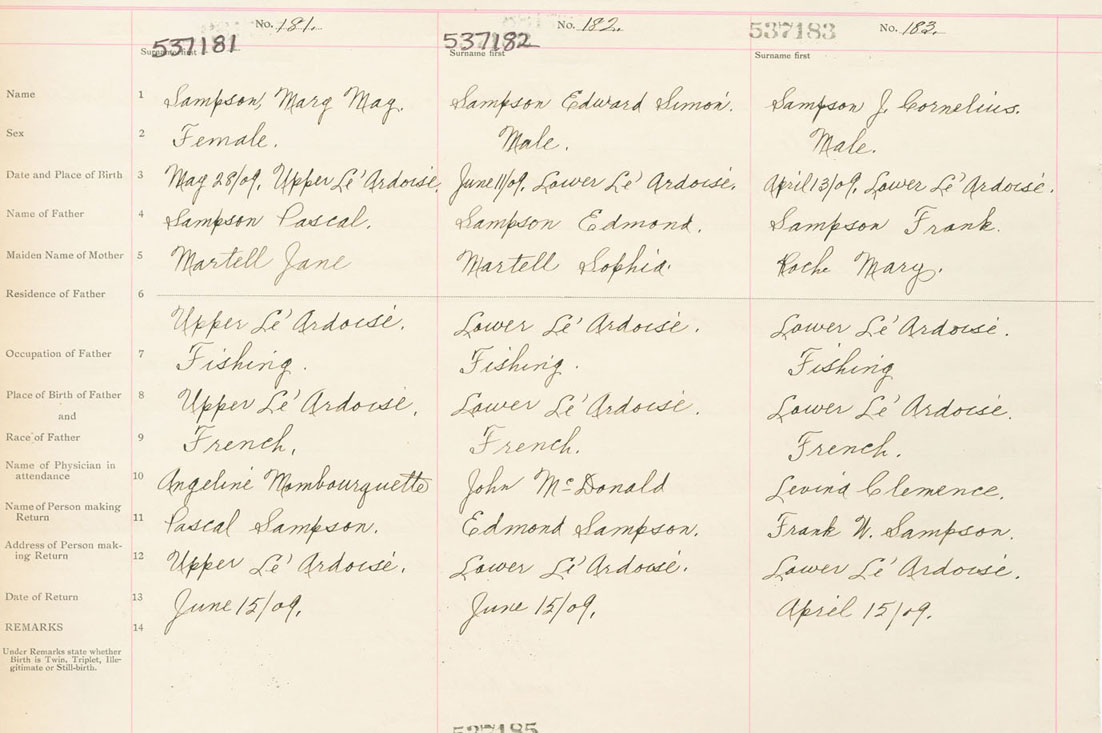 No. 181. No. 182. No. 183.
537181 537182 537183
Surname first Surname first Surname first
Name 1 Sampson, Mary Mag. Sampson Edward Simon. Sampson J. Cornelius.
Sex 2 Female. Male. Male.
Date and Place of Birth 3 May 28/09, Upper Lé Ardoisé, June 11/09, Lower Lé Ardoisé. April 13/09, Lower Lé Ardoisé.
Name of Father 4 Sampson Pascal. Sampson Edmond. Sampson Frank.
Maiden Name of Mother 5 Martell Jane Martell Sophia. Roche Mary.
Residence of Father 6
Upper Lé Ardoisé. Lower Lé Ardoisé. Lower Lé Ardoisé.
Occupation of Father 7 Fishing. Fishing. Fishing
Place of Birth of Father 8 Upper Lé Ardoisé, Lower Lé Ardoisé. Lower Lé Ardoisé.
and
Race of Father 9 French, French. French.
Name of Physician in
attendance 10 Angeliné Mombourquette John McDonald Levina Clemence.
Name of Person making
Return 11 Pascal Sampson. Edmond Sampson. Frank W. Sampson.
Address of Person mak-
ing Return 12 Upper Lé Ardoisé, Lower Lé Ardoisé. Lower Lé Ardoisé.
Date of Return 13 June 15/09, June 15/09, April 15/09.
REMARKS 14
Under Remarks state whether
Birth is Twin, Triplet, Ille-
gitimate or Still-birth.
537185